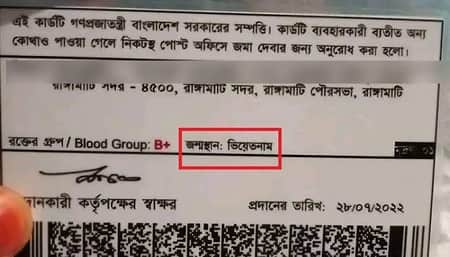 এই কার্ডটি গণপ্রজাতন্ত্রী বাংলাদেশ সরকারের সম্পত্তি। কার্ডটি ব্যবহারকারী ব্যতীত অন্য
কোথাও পাওয়া গেলে নিকটস্থ পোস্ট অফিসে জমা দেবার জন্য অনুরোধ করা হলো।
রাঙ্গামাটি সদর - ৪৫০০, রাঙ্গামাটি সদর, রাঙ্গামাটি পৌরসভা, রাঙ্গামাটি
রক্তের গ্রুপ / Blood Group: B+ জন্মস্থান: ভিয়েতনাম
দানকারী কর্তৃপক্ষের স্বাক্ষর প্রদানের তারিখ: ২৮/০৭/২০২২